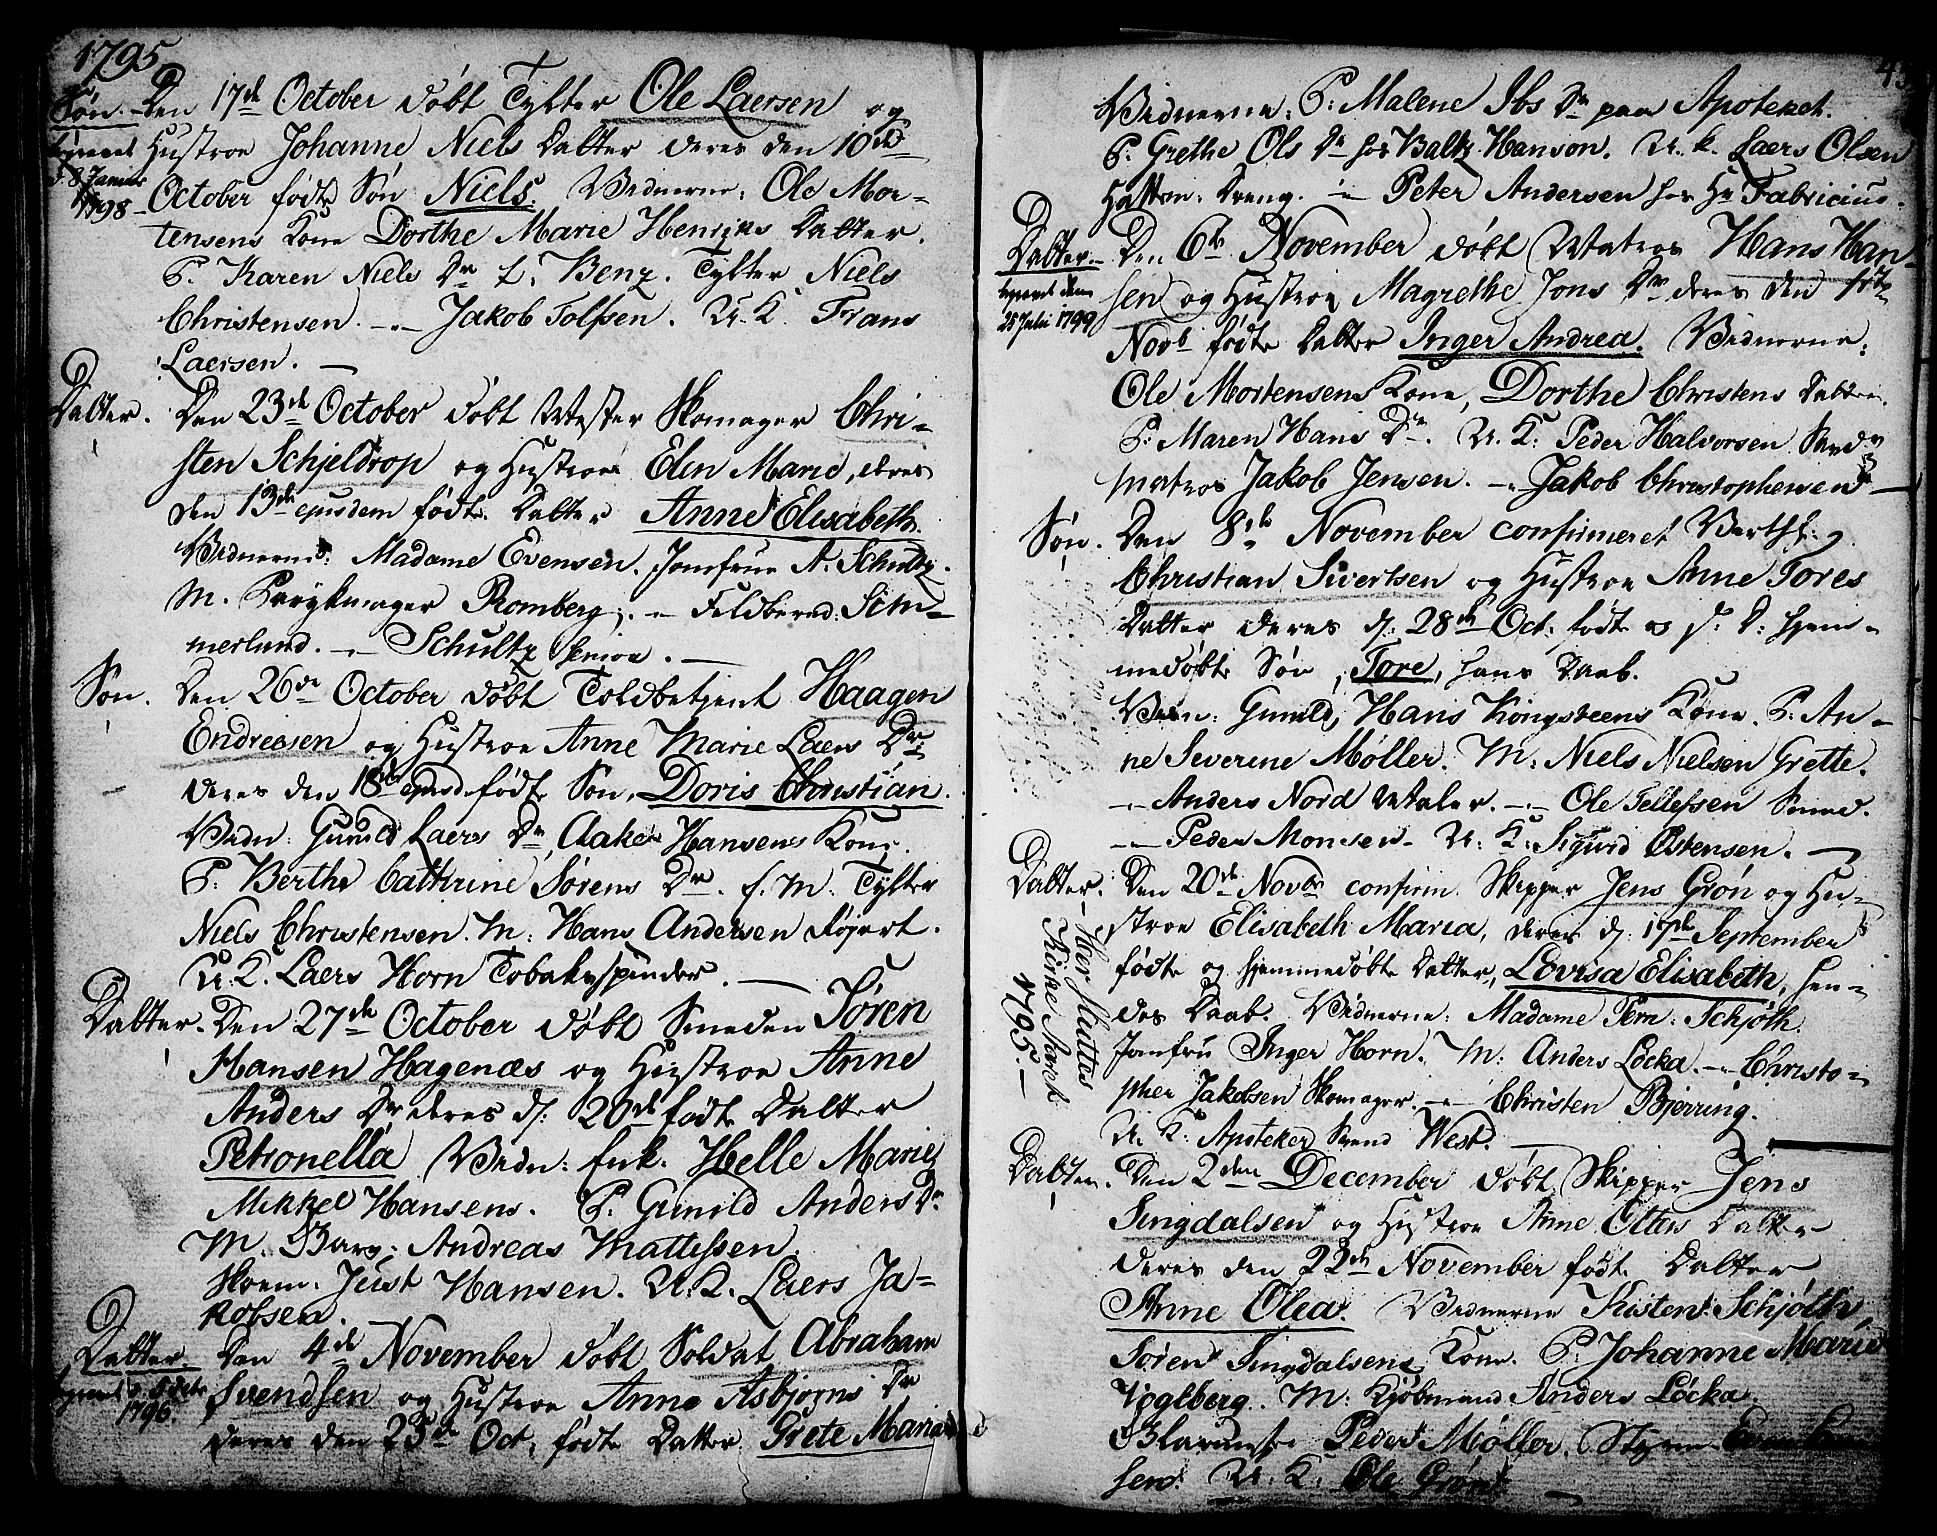 1795
Søn. Den 17de October døbt Tylter Ole Laersen og
Hustroe Johanne Niels Datter deres den 10de
8 Januar
1798
October fødte Søn Niels. Vidnerne: Ole Mor-
tensens Kone Dorthe Marie Henriks Datter.
P. Karen Niels Dr Tylter Niels
Christensen. Jakob Tolfsen. U. K. Frans
Laersen.
Datter. Den 23de October døbt Mester Skomager Chri-
sten Schjeldrop og Hustroe Elen Marie, deres
den 13de ejusdem fødte Datter Anne Elisabeth.
Vidnerne: Madame Evensen. Jomfrue A. Schultz.
M. Krigkmager Romberg. Feldbered: Sim-
merlund. Schultz senior.
Søn. Den 26de October døbt Toldbetjent Haagen
Endresen og Hustroe Anne Marie Laers Dr
deres den 18de ejusd fødte Søn, Doris Christian.
Vidn: Gunild Laers Dr, Aake Hansens Kone.
P: Berthe Cathrine Sørens Dr. M: Tylter
Niels Christensen. M: Hans Andersen Røjert.
U. K. Laers Horn Tobakspinder.
Datter. Den 27de October døbt Smeden Søren
Hansen Hagenæs og Hustroe Anne
Anders Dr deres d: 20de fødte Datter
Petronella Vidn: Enk. Helle Marie
Mikkel Hansens. P. Gunild Anders Dr.
M. Borg: Andreas Mattissen.
Just Hansen. U. K. Laers Ja-
kobsen.
Datter. Den 4de November døbt Soldat Abraham
1796.
Svendsen og Hustroe Anne Asbjørns Dr
deres den 23de Oct. fødte Datter Grete Maria
Vidnerne: P: Malene Ibs Dr paa Apoteket.
P. Grethe Ols Dr hos Baltz. Hanson. U. K. Laers Olsen
Dreng. Peter Andersen hos Hr Fabricius.
Datter. Den 6te November døbt Matros Hans Han-
25 Julii 1799
sen og Hustroe Magrethe Jons Dr deres den
Novb fødte Datter Inger Andrea. Vidnerne:
Ole Mortensens Kone, Dorthe Christens Datter.
P: Maren Hans Dr. U. K: Peder Halvorsen
Matros Jakob Jensen. Jakob Christophersen
Søn. Den 8de November confirmeret Verth:
Christian Sivertsen og Hustroe Anne Tores
Datter deres d: 28de Oct: fødte og hjem-
medøbte Søn, Tore, hans Daab.
Vidn: Gunild, Hans Kongsteens Kone. P. An-
ne Severine Møller. M: Niels Nielsen Grette.
Anders Nord Maler. Ole Tellefsen Smed.
Peder Monsen. U. K: Sigvid Østensen.
Datter. Den 20de Novbr confirm. Skipper Jens Grøn og Hu-
stroe Elisabeth Maria, deres d: 17de September
fødte og hjemmedøbte Datter, Lovisa Elisabeth, hen-
des Daab. Vidnerne: Madame Schjøth.
Jomfru Inger Horn. M: Anders Løcka. Christo-
pher Jakobsen Skomager. Christen Bjerring.
U. K: Apoteker Svend West.
Her sluttes
Kirke Aaret
1795.
Datter. Den 2den December døbt Skipper Jens
Singdalsen og Hustroe Anne Ottes Datter
deres den 22de November fødte Datter
Anne Olea. Vidnerne Kisten: Schjøth,
Søren Singdalsens Kone. P: Johanne Marie
Voglberg. M: Kjøbmand Anders Løcka
Peder Møller. Styrm.
sen. U. K: Ole Grøn.